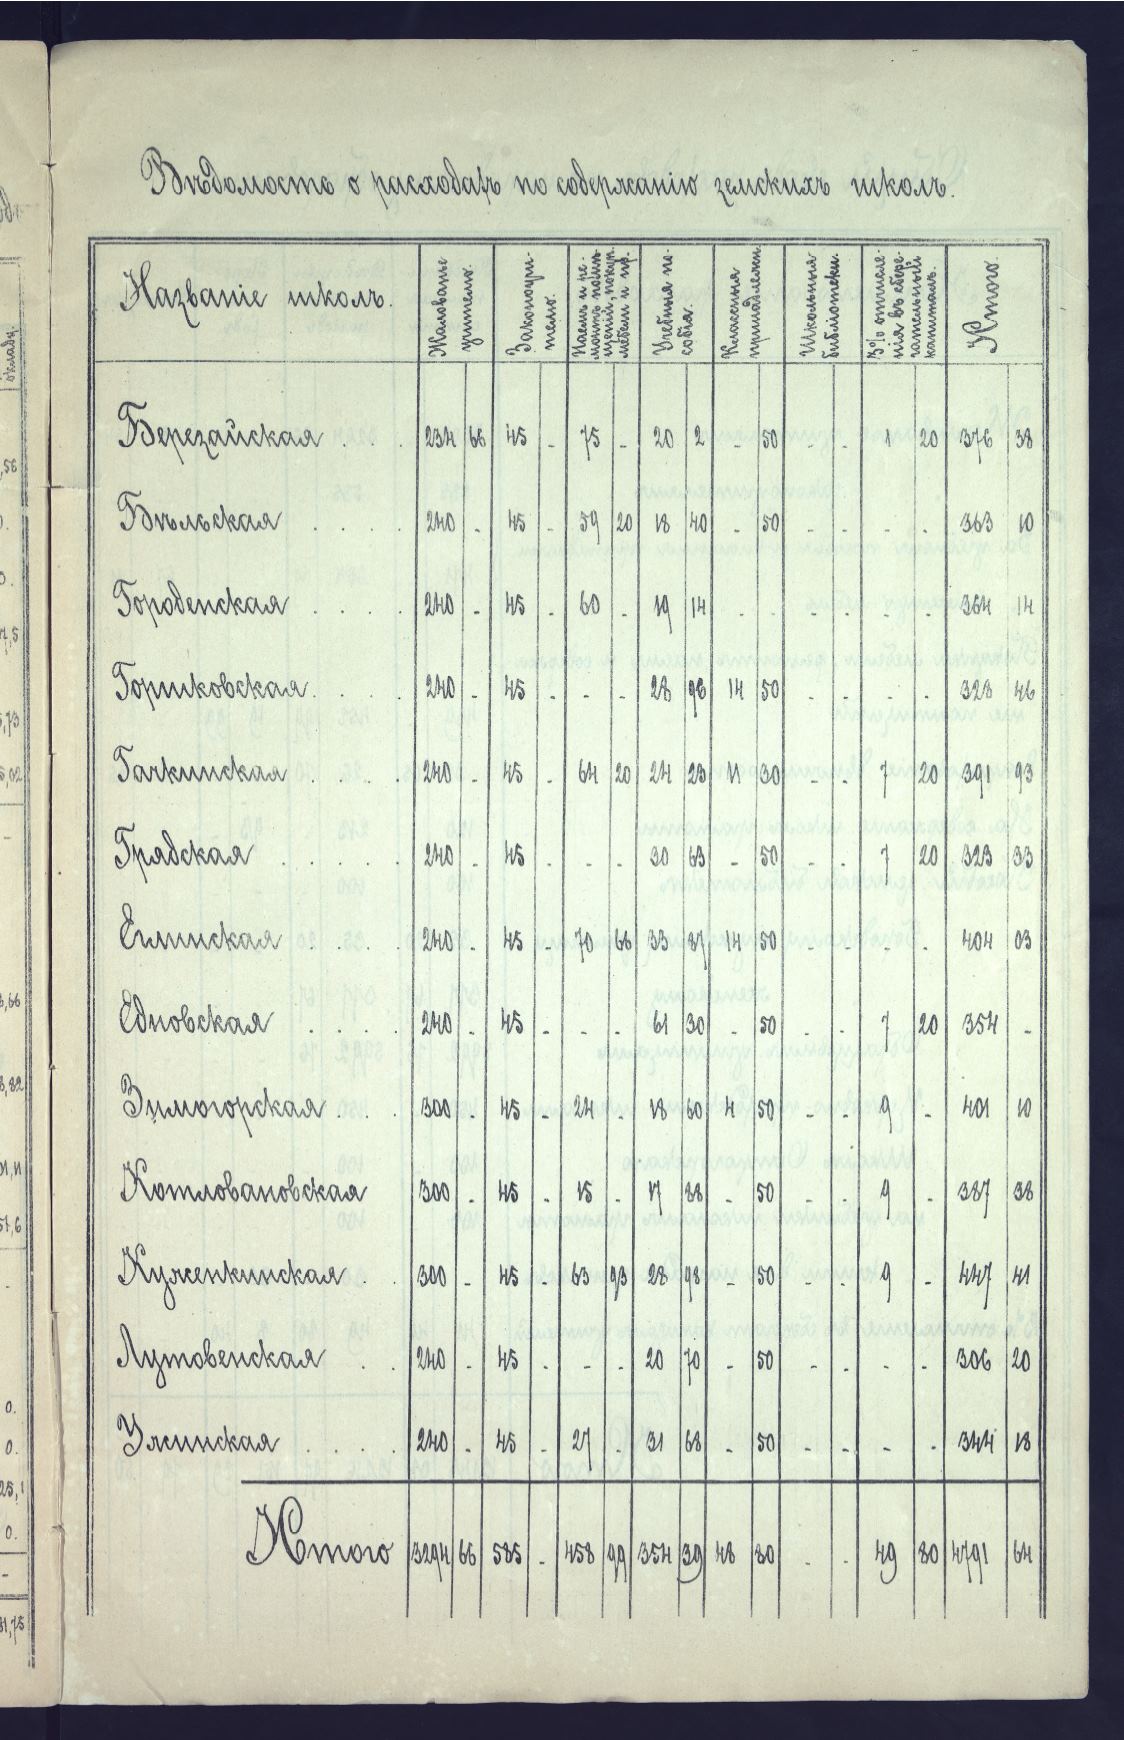 Вѣдомость о расходахъ по содержанію земскихъ школъ.
Названіе школъ. Жалованье учителю. Законоучителю. Наемъ и ремонтъ помѣщеній, покуп. мебели и пр. Учебныя пособія. Классныя принадлежн. Школьныя библіотеки. 3% отчисленія въ сберегательный капиталъ. Итого.
Березайская . . . 234 66 45 - 75 - 20 2 - 50 - - 1 20 376 38
Бѣльская . . . . 240 - 45 - 59 20 18 40 - 50 - - - - 363 10
Городенская . . . . 240 - 45 - 60 - 19 14 - - - - - - 364 14
Горшковская . . . . 240 - 45 - - - 28 96 14 50 - - - - 328 46
Гачкинская . . . . 240 - 45 - 64 20 24 23 11 30 - - 7 20 391 93
Грядская . . . . . 240 - 45 - - - 30 63 - 50 - - 7 20 323 33
Еглинская . . . . 240 - 45 - 70 66 33 87 14 50 - - - - 404 03
Едновская . . . . 240 - 45 - - - 61 30 - 50 - - 7 20 354 -
Зимогорская . . . 300 - 45 - 24 - 18 60 4 50 - - 9 - 401 10
Котловановская 300 - 45 - 15 - 17 88 - 50 - - 9 - 387 38
Куженкинская . . 300 - 45 - 63 93 28 98 - 50 - - 9 - 447 41
Лутовенская . . 240 - 45 - - - 20 70 - 50 - - - - 306 20
Ужинская . . . . 240 - 45 - 27 - 31 68 - 50 - - - - 344 18
Итого 3294 66 585 - 458 99 354 39 48 80 - - 49 80 4791 64